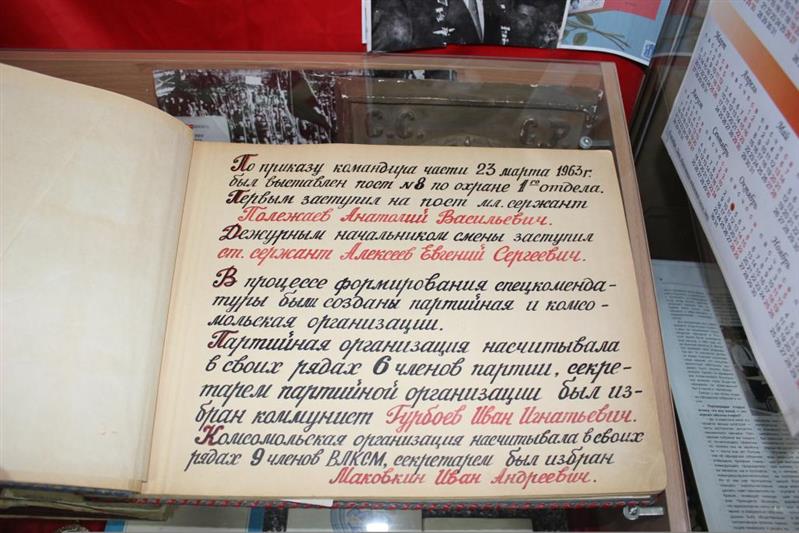 С.С. С.Р.
По приказу командира части 23 марта 1963г.
был выставлен пост №8 по охране 1го отдела.
Первым заступил на пост мл. сержант
Полежаев Анатолий Васильевич.
Дежурным начальником смены заступил
ст. сержант Алексеев Евгений Сергеевич.
В процессе формирования спецкоменда-
туры были созданы партийная и комсо-
мольская организации.
Партийная организация насчитывала
в своих рядах 6 членов партии, секре-
тарем партийной организации был из-
бран коммунист Гурбоев Иван Игнатьевич.
Комсомольская организация насчитывала в своих
рядах 9 членов ВЛКСМ, секретарем был избран
Маковкин Иван Андреевич.